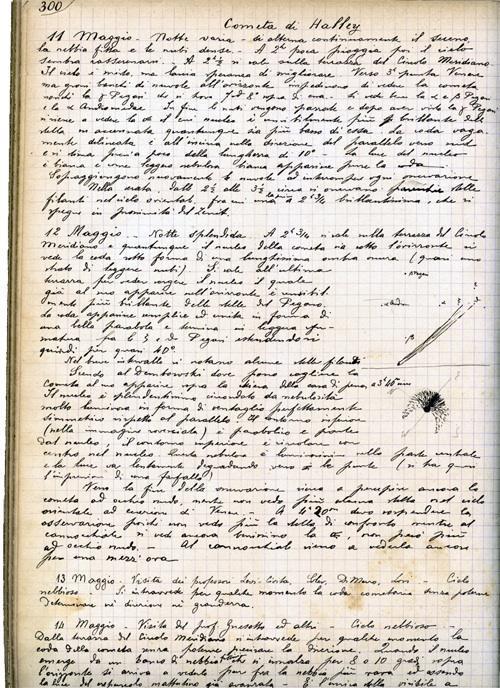 300
Cometa di Halley
11 Maggio - Notte varia - si alterna continuamente il sereno,
la nebbia fitta e le nubi dense. - A 2h poca pioggia poi il cielo
sembra rasserenarsi. A 2h ½ si sale sulla terrazza del Circolo Meridiano.
Il cielo è umido, ma lascia speranza di migliorare. Verso 3h spunta Venere
ma grossi banchi di nuvole all'orizzonte impediscono di vedere la cometa
e la α Andromedae. In fine le nubi vengono parate e dopo aver visto la γ Pegasi
si viene a vedere la di cui nucleo è sensibilmente più brillante della
stella, quantunque sia più basso di essa. La coda vaga-
mente delineata è all'incirca nella direzione del parallelo verso sud
e si stima poco della lunghezza di 10°. La luce del nucleo
è bianca, leggera nebulosa bianca apparisce pure la coda.
Sopraggiungono nuovamente le nuvole ad interrompere ogni osservazione
Nella serata dalle 2½ alle 3½ circa si osservano parecchie stelle
filanti nel cielo orientale, fra cui una a 2h ¾ brillantissima, che si
spegne in prossimità del Zenit.
12 Maggio - Notte splendida - A 2h ¾ si sale sulla terrazza del Circolo
Meridiano e quantunque il nucleo della cometa sia sotto l'orizzonte si
vede la coda sotto forma di una lunghissima ombra oscura (quasi uno
strato di leggere nubi) Si sale all'ultima
terrazza per veder sorgere il nucleo il quale
già al suo apparire sull'orizzonte è sensibil-
mente più brillante delle stelle del Pegaso.
La coda apparisce semplice ed unita in forma di
una bella parabola e termina in leggera sfu-
matura fra la ξ di Pegasi estendendosi
quindi per quasi 40°.
Nel breve intervallo si notano alcune stelle filanti
Scendo al Dembowski dove posso cogliere la
Cometa al suo apparire sopra la chiesa della casa di pena, a 3h 46m
Il nucleo è splendentissimo circondato da nebulosità
molto luminosa in forma di ventaglio perfettamente
simmetrico rispetto al parallelo. Il contorno superiore
(nella immagine rovesciata) è parabolico e parte
dal nucleo, il contorno inferiore è circolare con
centro nel nucleo. Questa nebulosa è luminosissima nella parte centrale
e la luce va lentamente degradando verso le punte (si ha quasi
l'impressione di una farfalla)
Verso la fine della osservazione riesco a percepire ancora la
cometa ad occhio nudo, mentre non vedo più alcuna stella nel cielo
orientale ad eccezione di Venere. A 4h 20m devo sospendere la
osservazione poichè non vedo più la stella di confronto mentre al
cannocchiale si vede ancora benissimo la, non però più
ad occhio nudo. - Al cannocchiale riesco a vederla ancora
per una mezz'ora
13 Maggio - Visita dei professori Levi-Civita, Di Muro, Lori - Cielo
nebbioso. - Si intravede per qualche momento la coda cometaria senza poterne
determinare nè direzione nè grandezza.
14 Maggio - Visita del prof. Gnesotto ed altri - Cielo nebbioso -
Dalla terrazza del Circolo Meridiano si intravede per qualche momento la
coda della cometa senza poterne precisare la direzione. Quando il nucleo
emerge da un banco di nebbia che si innalza per 8 o 10 gradi sopra
l'orizzonte si arriva a vederlo pur fra la nebbia più rara ed essendo
la luce del crepuscolo mattutino già avanzata -